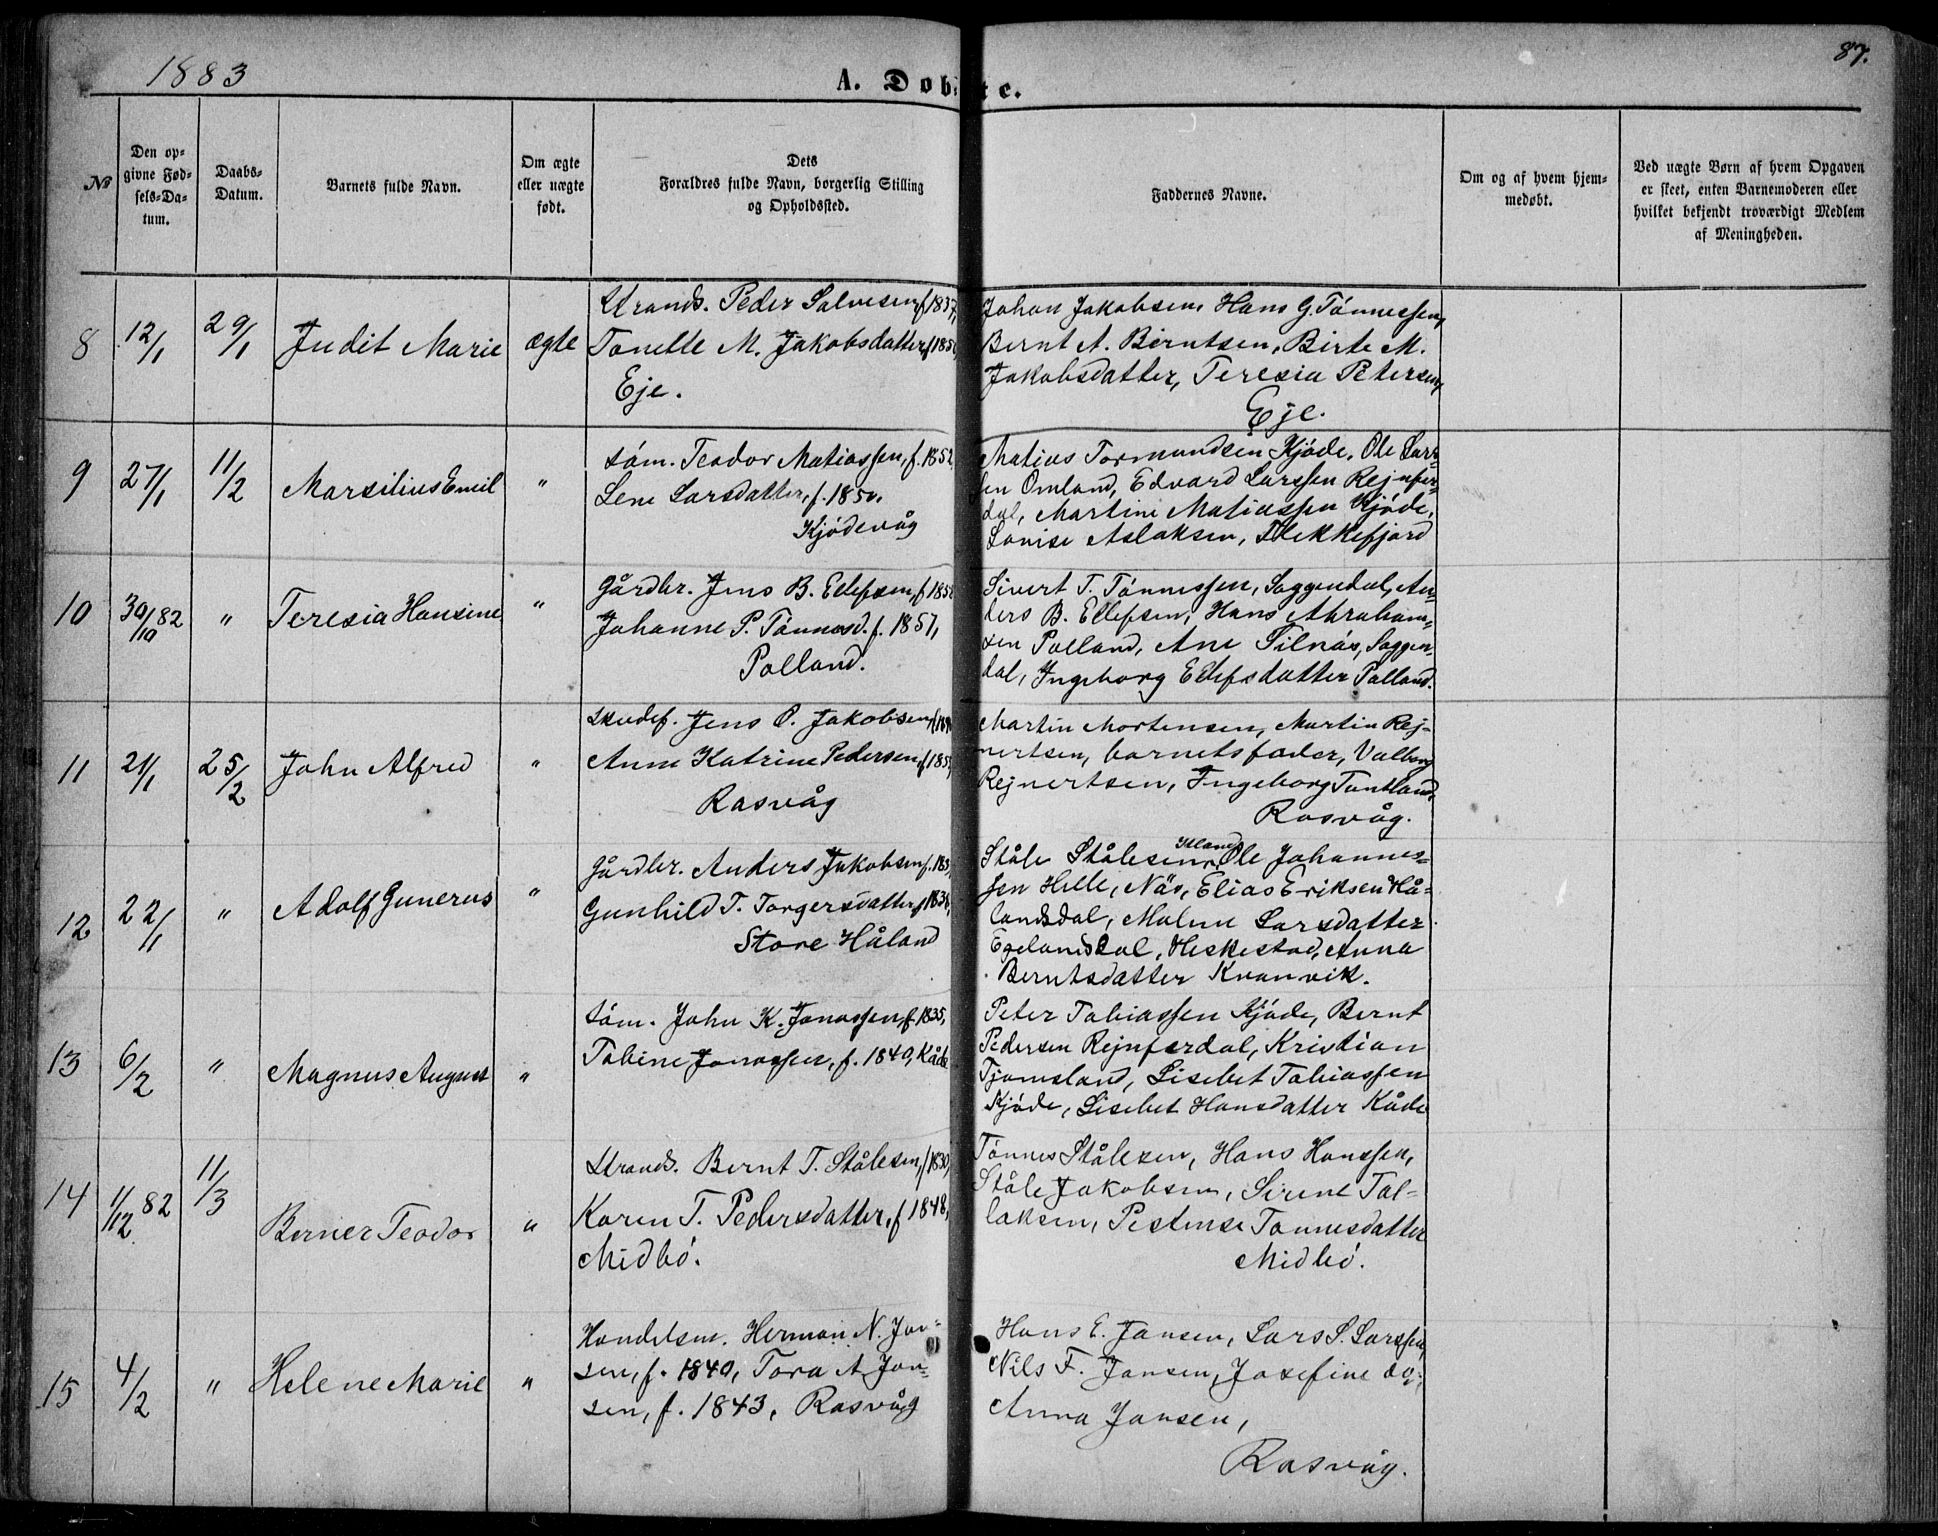 1883
A. Dob te.
87.
№
Den op-
givne Fød-
sels-Da-
tum.
Daabs-
Datum.
Barnets fulde Navn.
Om ægte
eller uægte
født.
Dets
Forældres fulde Navn, borgerlig Stilling
og Opholdssted.
Faddernes Navne.
Om og af hvem hjem-
medøbt.
Ved uægte Børn af hvem Opgaven
er skeet, enten Barnemoderen eller
hvilket bekjendt troværdigt Medlem
af Menigheden.
8
12/1
29/1
Judit Marie
ægte
Strands. Peder Salvesen, f 1837,
Tonette M. Jakobsdatter, f 185
Eje.
Johan Jakobsen, Hans G. Tönnessen,
Bernt A. Berntsen, Birte M.
Jakobsdatter, Teresia Petersen,
Eje.
9
27/1
11/2
Marsilius Emil
"
söm. Teodor Matiassen, f. 1852
Lene Larsdatter, f. 1850.
Kjödevåg
Matias Tormundsen Kjöde, Ole Lars-
sen Omland, Edvard Larssen Rejnfer-
dal, Martine Matiassen Kjöde,
Lovise Aslaksen, Flekkefjord
10
30/10 82
"
Teresia Hansine
"
Gårdbr. Jens B. Ellefsen, f 185
Johanne P. Tönnesd. f. 1857,
Polland.
Sivert T. Tönnessen, Saggendal, An-
ders B. Ellefsen, Hans Abraham-
sen Polland, Ane Silnäs, Saggen-
dal, Ingeborg Ellefsdatter Polland.
11
21/1
25/2
John Alfred
"
skudef. Jens O. Jakobsen, f 18
Anne Katrine Pedersen, f 185
Rasvåg
Martin Mortensen, Martin Rej-
nertsen, barnets fader, Valborg
Rejnertsen, Ingeborg Tuntland,
Rasvåg.
12
22/1
"
Adolf Gunerus
"
Gårdbr. Anders Jakobsen f. 183
Gunhild T. Torgersdatter, f 183
Store Håland
Ståle Stålesen, Ole Johannes-
sen Helle, Näs, Elias Eriksen Hå-
landsdal, Malene Larsdatter
Egelandsdal, Heskestad, Anna
Berntsdatter Kvanvik.
13
6/2
"
Magnus August
"
söm. John K. Jonassen, f. 1835,
Tobine Jonassen, f. 1840, Kåde
Peter Tobiassen Kjöde, Bernt
Pedersen Rejnferdal, Kristian
Tjomsland, Lisebet Tobiassen
Kjöde, Lisebet Hansdatter Kåde
14
1/12 82
11/3
Berner Teodor
"
Strands. Bernt T. Stålesen, f 1830,
Karen T. Pedersdatter, f 1848,
Midbö.
Tönnes Stålesen, Hans Hanssen,
Ståle Jakobsen, Sirene Tal-
laksen, Pestense Tönnesdatter
Midbö.
15
4/2
"
Helene Marie
"
Handelsm. Herman N. Jan-
sen, f. 1840, Tora A Jan-
sen, f. 1843, Rasvåg
Hans E. Jansen, Lars S. Larssen,
Nils F. Jansen, Josefine do,
Anna Jansen,
Rasvåg.